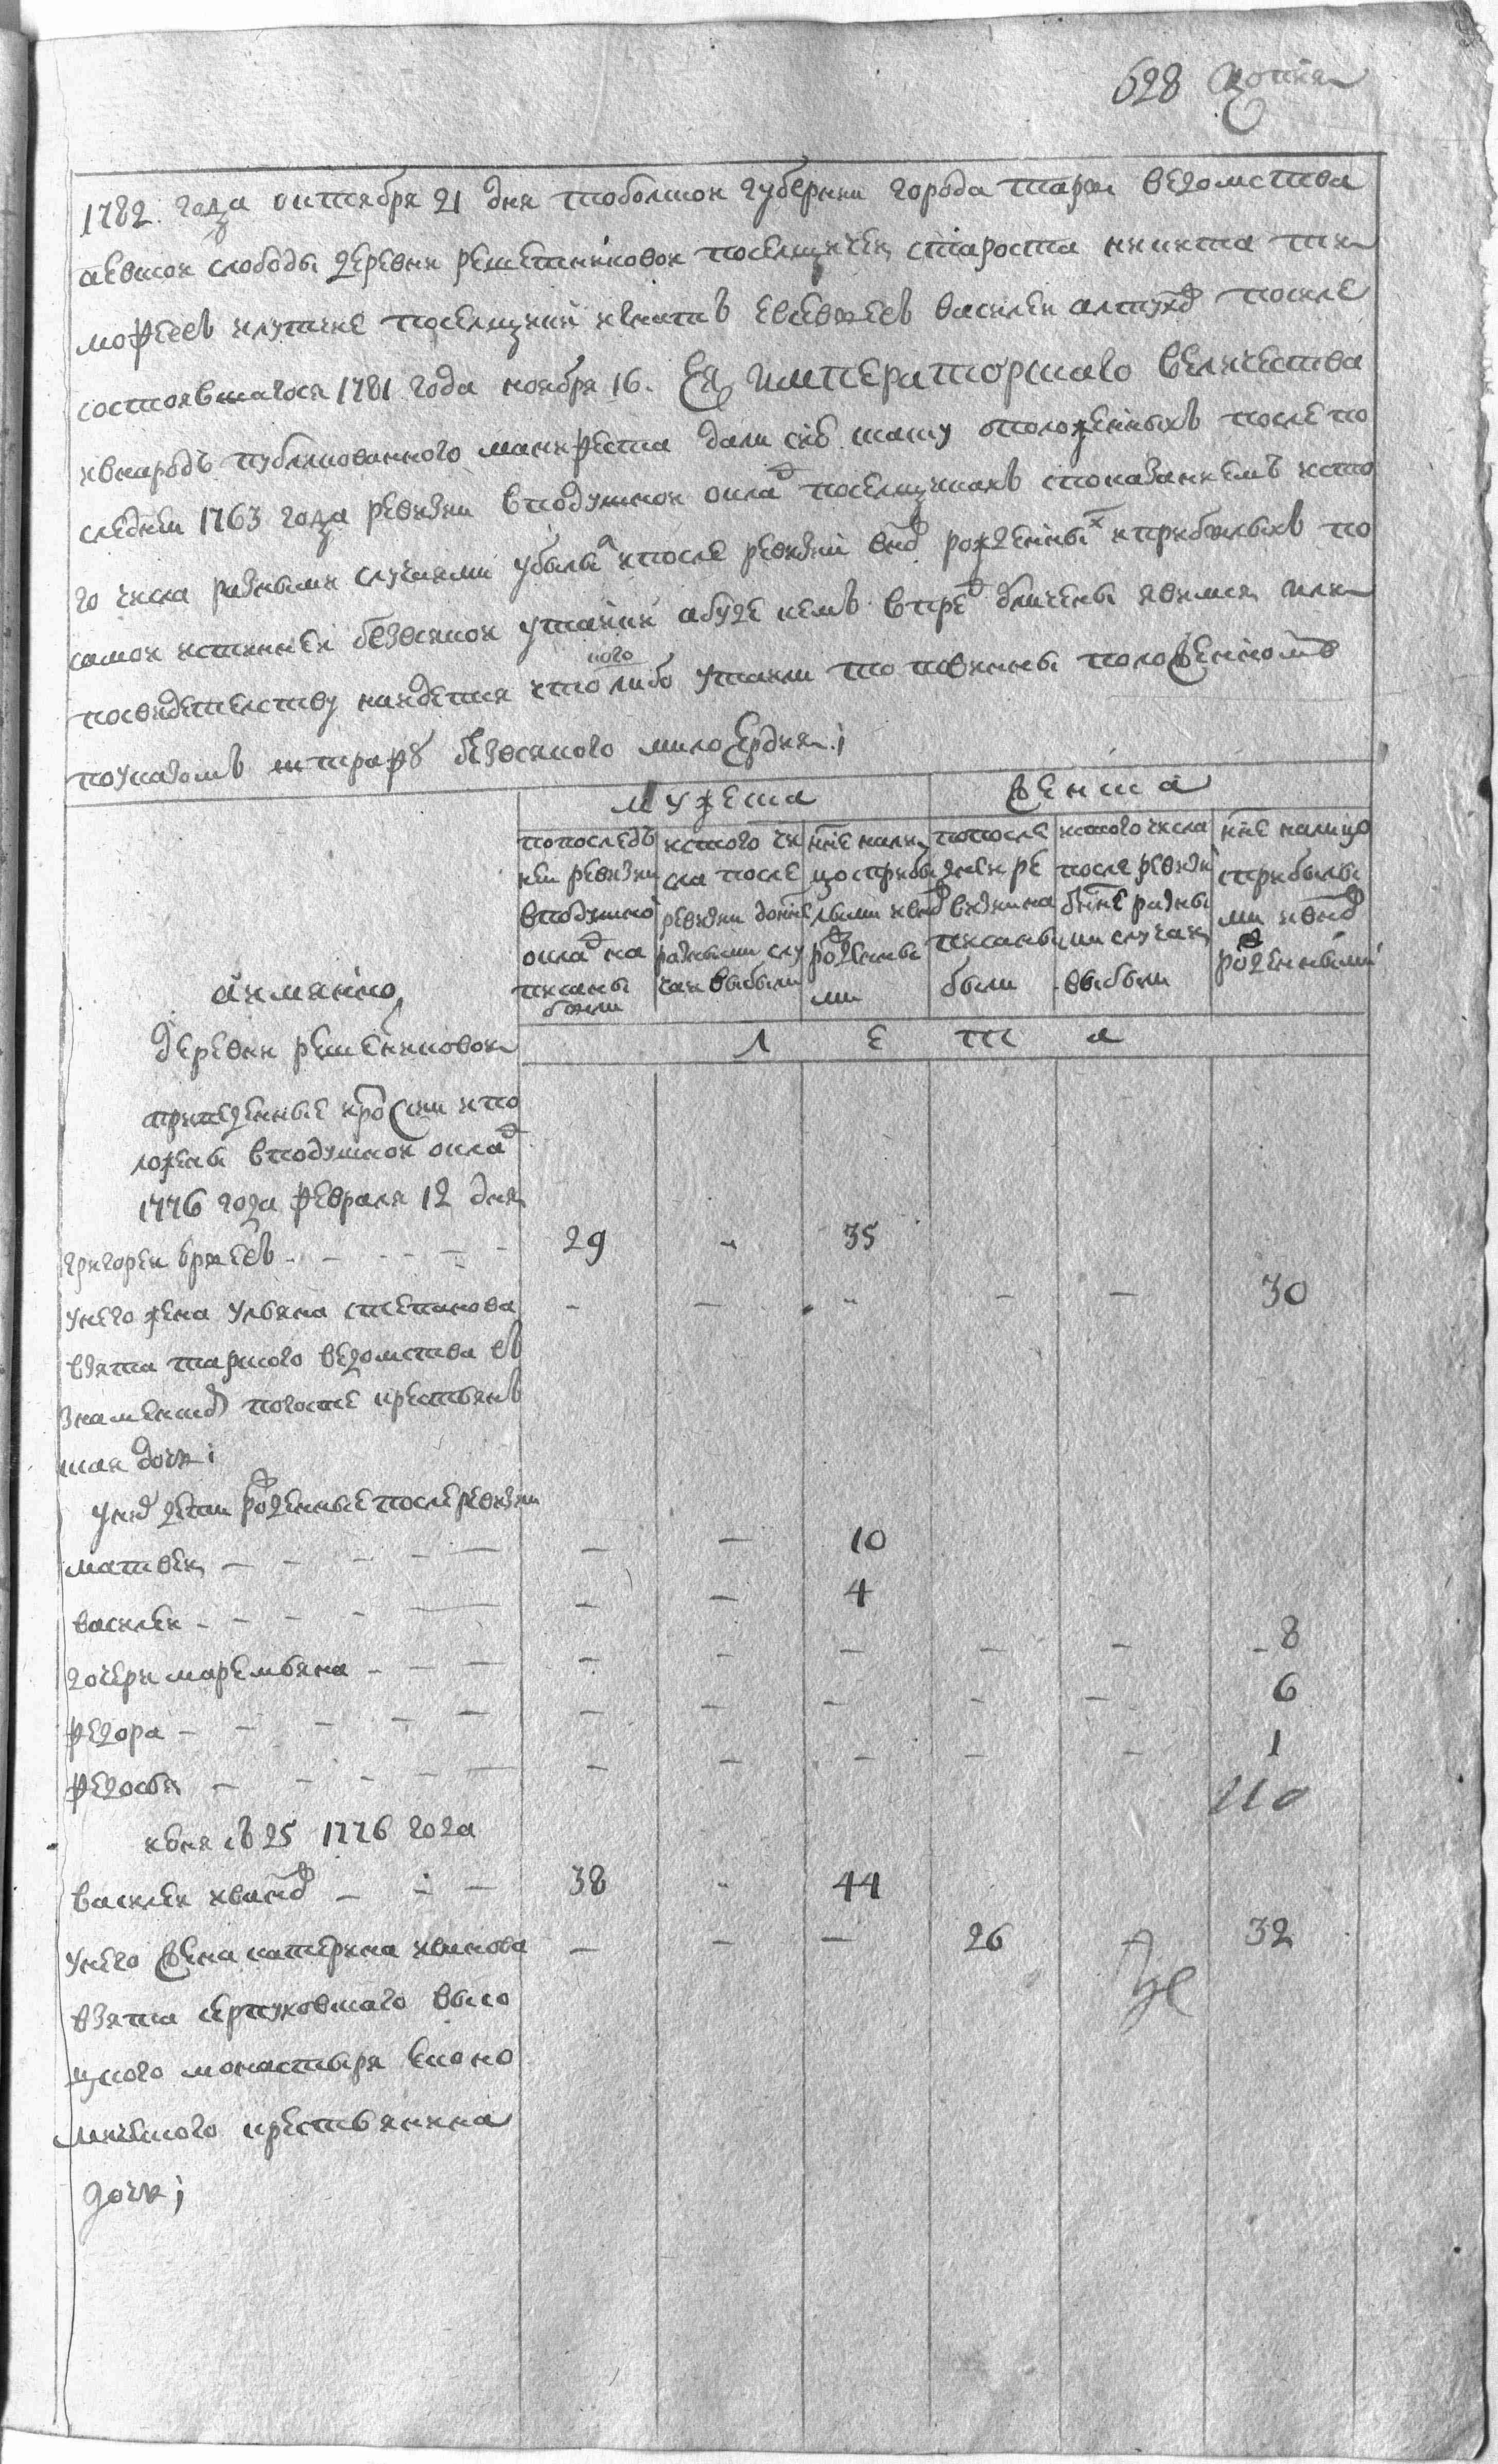 628 Копия
1782 года октября 21 дня тоболской губерни города тары ведомства
аевской слободы деревни решетниковой поселщичей староста никита ти
мофеевъ илутчие поселщики игнатъ евсевеевъ василеи алтухо после
состоявшагося 1781 года ноября 16. Ея императорскаго величества
ивнародъ публикованного манифеста дали сию скаску оположенныхъ после по
следнеи 1763 года ревизии вподушнои окла поселщикахъ споказаниемъ исто
го числа разными случаями убыла ипосле ревизии вно рожденны х иприбылыхъ по
самои истиннеи безвсякои утаики абуде кемъ впре бличены явимся или
ного
посвидетелству наидется что либо утаили то повинны положенномъ
поуказомъ штрафу безвсякого милосердия;
мужеска
женска
попоследъ
неи ревизии
вподушнои
окла на
писаны
были
истого чи
сла после
ревизии доныне
разными слу
чаи выбыли
ныне нали
цо сприбы
лыми ивно
рожденны
ми
попосле
днеи ре
визии на
писаны
были
истого числа
после ревизи
доныне разны
ми случаи
выбыли
ныне налицо
сприбылы
ми ивно
рожденными
лета
аимянно
деревни решетниковои
приведенные изросии ипо
ложены вподушнои окла
1776 года февраля 12 дня
григореи юрьевъ - - - - - 29 - 35
унего жена ульяна степанова - - - - - 30
взята тарского ведомства въ
знаменско погосте крестьянъ
ская дочь;
уни дети рожденные послеревизии
матвеи - - - - - - - 10
василеи - - - - - - - 4
дочери маремьяна - - - - - - - - 8
федора - - - - - - - - - - 6
федосья - - - - - - - - - - 1
июня съ 25 1776 года
василеи ивано - - - 38 - 44
унего жена катерина иванова - - - 26 - 32
взята серпуховскаго высо
цкого монастыря еконо
мического крестьянина
дочь;